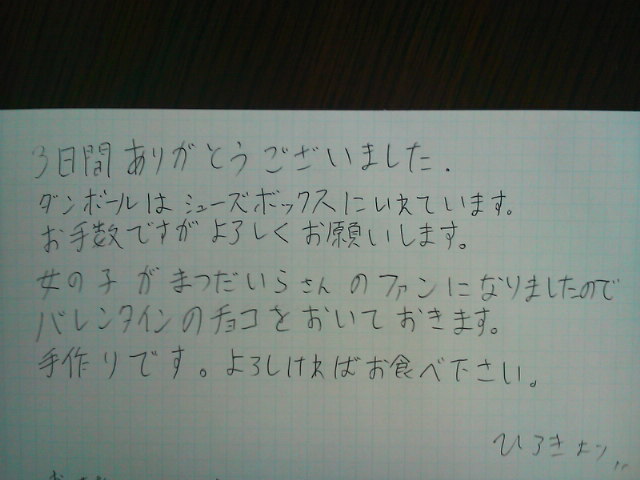 3日間ありがとうございました.
ダンボールはシューズボックスにいれています。
お手数ですがよろしくお願いします。
女の子がまつだいらさんのファンになりましたので
バレンタインのチョコをおいておきます。
手作りです。よろしければお食べ下さい。
ひろき